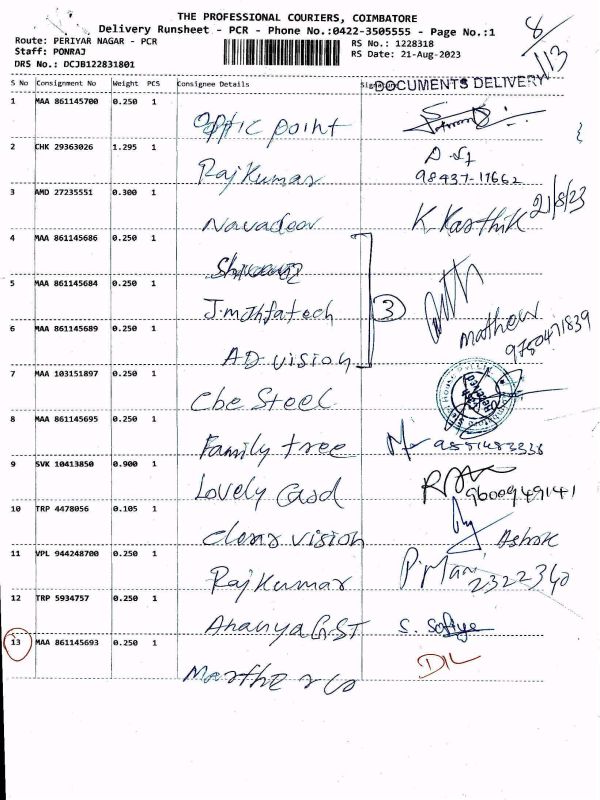 THE PROFESSIONAL COURIERS, COIMBATORE
Delivery Runsheet - PCR - Phone No.:0422-3505555 - Page No.:1
8/113
Route: PERIYAR NAGAR - PCR
RS No.: 1228318
Staff: PONRAJ
RS Date: 21-Aug-2023
DRS No.: DCJB122831801
DOCUMENTS DELIVERY
S No Consignment No Weight PCS Consignee Details
1 MAA 861145700 0.250 1
Optic point
2 CHK 29363026 1.295 1
Rajkumar
98437-17662
3 AMD 27235551 0.300 1
Navadeor K Karthik 21/8/23
4 MAA 861145686 0.250 1
5 MAA 861145684 0.250 1
J.mahfatech 3
6 MAA 861145689 0.250 1
Mathew
AD vision 9780471839
7 MAA 103151897 0.250 1
Cbe Steel
8 MAA 861145695 0.250 1
Family tree
9 SVK 10413850 0.900 1
Lovely Card 9600949141
10 TRP 4478056 0.105 1
vision Ashok
11 VPL 944248700 0.250 1
Rajkumar P. Mani 2322340
12 TRP 5934757 0.250 1
Ananya G.S.T S. Sofiya
13 MAA 861145693 0.250 1
DIL